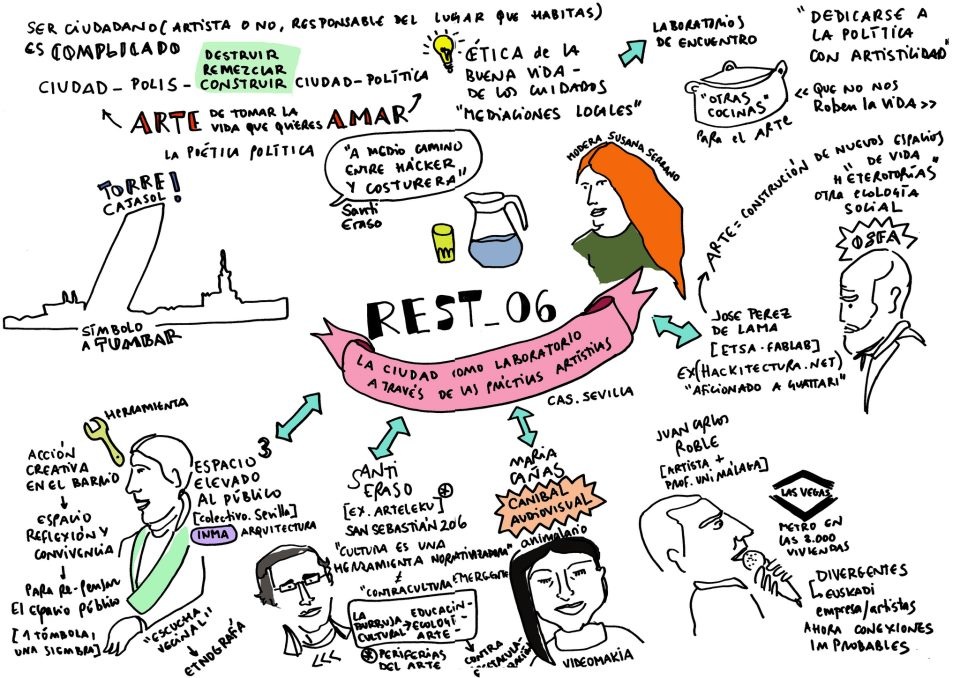 SER CIUDADANO (ARTISTA O NO, RESPONSABLE DEL LUGAR QUE HABITAS)
ES COMPLICADO
DESTRUIR
REMEZCLAR
CIUDAD - POLIS - CONSTRUIR CIUDAD - POLÍTICA
ARTE DE TOMAR LA VIDA QUE QUIERES AMAR
LA POÉTICA POLÍTICA
ÉTICA de LA
BUENA VIDA -
DE LOS CUIDADOS
"MEDIACIONES LOCALES"
LABORATORIOS
DE ENCUENTRO
"OTRAS
COCINAS"
para el ARTE
"DEDICARSE A
LA POLÍTICA
CON ARTISTILIDAD"
<< QUE NO NOS
Roben la VIDA >>
TORRE!
CAJASOL
SÍMBOLO
A TUMBAR
"A MEDIO CAMINO
ENTRE HÁCKER
Y COSTURERA"
Santi
Eraso
MODERA SUSANA SERRANO
ARTE = CONSTRUCIÓN DE NUEVOS ESPACIOS
DE VIDA
"HETEROTOPÍAS"
OTRA ECOLOGÍA
SOCIAL
OSFA
REST_06
LA CIUDAD COMO LABORATORIO
A TRAVÉS DE LAS PRÁCTICAS ARTÍSTICAS
CAS. SEVILLA
JOSE PEREZ
DE LAMA
[ETSA-FABLAB]
EX (HACKITECTURA.NET)
"AFICIONADO A GUATTARI"
HERRAMIENTA
ACCIÓN
CREATIVA
EN EL BARRIO
ESPACIO
REFLEXIÓN Y
CONVIVENCIA
PARA RE-pensar
El espacio público
[1 TÓMBOLA,
UNA SIEMBRA]
ESPACIO 3
ELEVADO
AL PÚBLICO
[colectivo. Sevilla]
INMA ARQUITECTURA
"ESCUCHA
VECINAL"
ETNOGRAFÍA
SANTI
ERASO
[EX. ARTELEKU]
SAN SEBASTIÁN 2016
"CULTURA ES UNA
HERRAMIENTA NORMATIVIZADORA"
≠
"CONTRACULTURA EMERGENTE"
LA
BURBUJA
CULTURAL
EDUCACIÓN-
ECOLOGÍ-
ARTE-
PERIFERIAS
DEL ARTE
CONTRA
MARIA
CAÑAS
CANIBAL
AUDIOVISUAL
animalario
VIDEOMAKIA
JUAN CARLOS
ROBLE
[ARTISTA +
PROF. UNI MÁLAGA]
LAS VEGAS
METRO EN
LAS 3.000
VIVIENDAS
DIVERGENTES
EUSKADI
empresa/artistas
AHORA CONEXIONES
IMPROBABLES